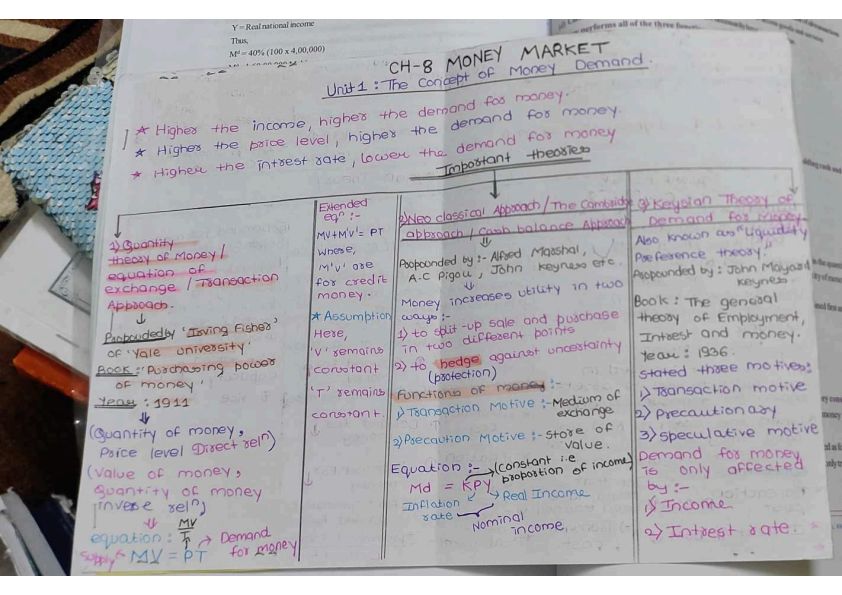 Y = Real national income
Thus,
Mᵈ = 40% (100 x 4,00,000)
performs all of the three
CH-8 MONEY MARKET
Unit 1 : The Concept of Money Demand.
★ Higher the income, higher the demand for money.
★ Higher the price level, higher the demand for money.
★ Higher the intrest rate, lower the demand for money
Important theories
1) Quantity
theory of Money /
equation of
exchange / Transaction
Approach.
↓
Propounded by 'Irving Fisher'
of 'Yale university'
Book :- 'Purchasing power
of money'
Year : 1911
↓
(Quantity of money,
Price level Direct relⁿ)
(Value of money,
Quantity of money
inverse relⁿ)
⇓
equation : MV
T
→ Demand
for money
supply MV = PT
Extended
eqⁿ :-
MV+M'V' = PT
Where,
M'V' are
for credit
money.
★ Assumption
Here,
'V' remains
constant
'T' remains
constant.
2) Neo classical Approach / The Cambridge
approach / Cash balance Approach
⇓
Propounded by :- Alfred Marshal,
A.C Pigou, John keyness etc.
↓
Money increases utility in two
ways :-
1) to split-up sale and purchase
in two different points
2) to hedge against uncertainty
(protection)
Functions of money :-
1) Transaction Motive :- Medium of
exchange
2) Precaution Motive :- Store of
value.
Equation :- → (constant i.e
proportion of income)
Md = KPY
Inflation
rate
→ Real Income
Nominal
income
3) Keysian Theory of
Demand for Money
Also known as "Liquidity
Preference theory."
Propounded by : John Maynard
keynes
Book : The general
theory of Employment,
Intrest and money.
Year : 1936.
stated three motives:
1) Transaction motive
2) Precautionary
3) Speculative motive
Demand for money
is only affected
by :-
1) Income
2) Intrest rate.